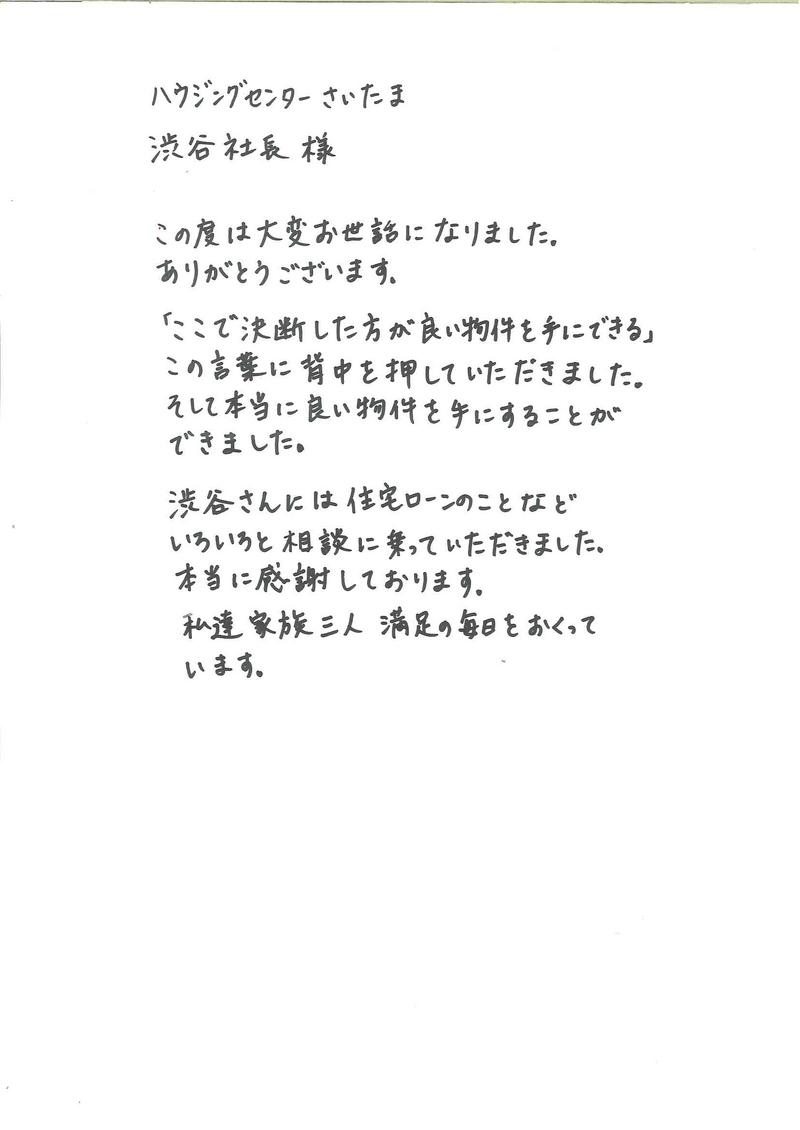 ハウジングセンターさいたま
渋谷社長 様
この度は大変お世話になりました。
ありがとうございます。
「ここで決断した方が良い物件を手にできる」
この言葉に背中を押していただきました。
そして本当に良い物件を手にすることが
できました。
渋谷さんには住宅ローンのことなど
いろいろと相談に乗っていただきました。
本当に感謝しております。
私達家族三人 満足の毎日をおくって
います。